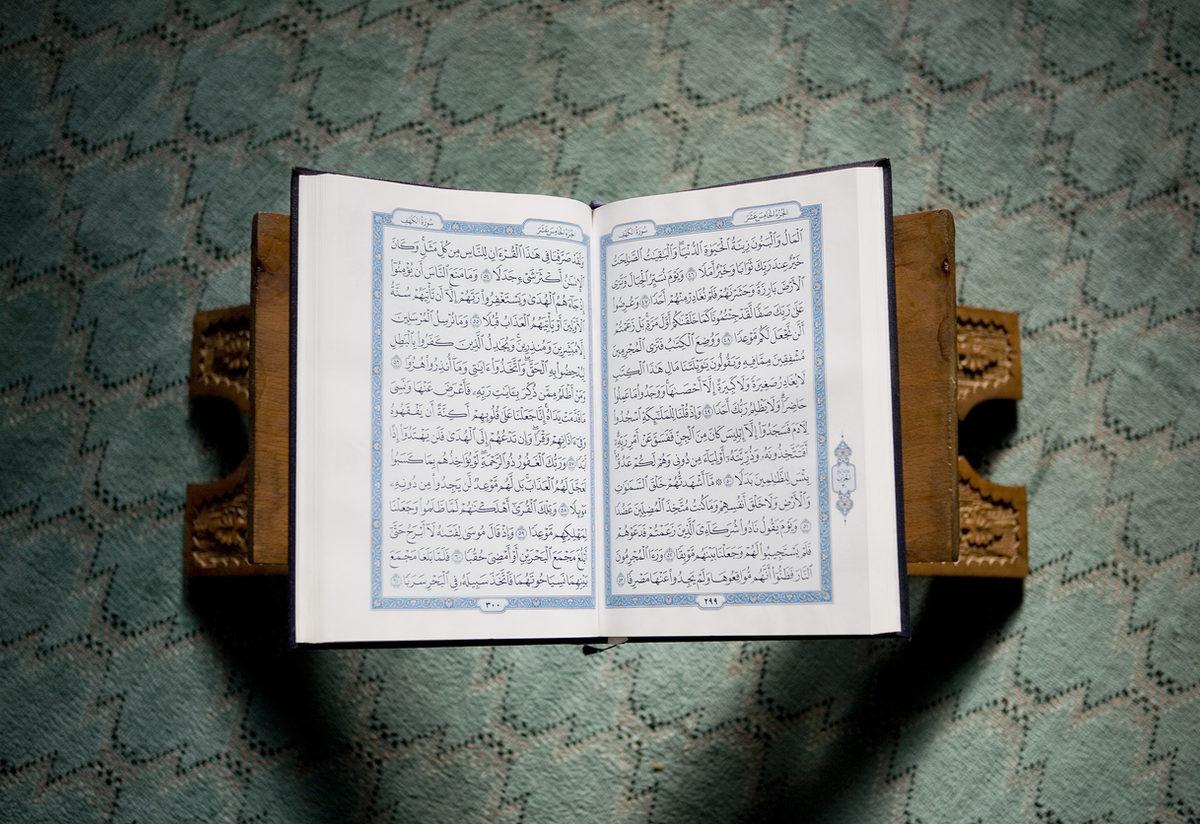 الجزء الخامس عشر
سورة الكهف
ٱلْمَالُ وَٱلْبَنُونَ زِينَةُ ٱلْحَيَوٰةِ ٱلدُّنْيَا وَٱلْبَٰقِيَٰتُ ٱلصَّٰلِحَٰتُ
خَيْرٌ عِندَ رَبِّكَ ثَوَابًا وَخَيْرٌ أَمَلًا ٤٦ وَيَوْمَ نُسَيِّرُ ٱلْجِبَالَ وَتَرَى
ٱلْأَرْضَ بَارِزَةً وَحَشَرْنَٰهُمْ فَلَمْ نُغَادِرْ مِنْهُمْ أَحَدًا ٤٧ وَعُرِضُوا۟
عَلَىٰ رَبِّكَ صَفًّا لَّقَدْ جِئْتُمُونَا كَمَا خَلَقْنَٰكُمْ أَوَّلَ مَرَّةٍۭ بَلْ زَعَمْتُمْ
أَلَّن نَّجْعَلَ لَكُم مَّوْعِدًا ٤٨ وَوُضِعَ ٱلْكِتَٰبُ فَتَرَى ٱلْمُجْرِمِينَ
مُشْفِقِينَ مِمَّا فِيهِ وَيَقُولُونَ يَٰوَيْلَتَنَا مَالِ هَٰذَا ٱلْكِتَٰبِ
لَا يُغَادِرُ صَغِيرَةً وَلَا كَبِيرَةً إِلَّآ أَحْصَىٰهَا وَوَجَدُوا۟ مَا عَمِلُوا۟
حَاضِرًا وَلَا يَظْلِمُ رَبُّكَ أَحَدًا ٤٩ وَإِذْ قُلْنَا لِلْمَلَٰٓئِكَةِ ٱسْجُدُوا۟
لِـَٔادَمَ فَسَجَدُوٓا۟ إِلَّآ إِبْلِيسَ كَانَ مِنَ ٱلْجِنِّ فَفَسَقَ عَنْ أَمْرِ رَبِّهِۦٓ
أَفَتَتَّخِذُونَهُۥ وَذُرِّيَّتَهُۥٓ أَوْلِيَآءَ مِن دُونِى وَهُمْ لَكُمْ عَدُوٌّۢ
بِئْسَ لِلظَّٰلِمِينَ بَدَلًا ٥٠ ۞ مَّآ أَشْهَدتُّهُمْ خَلْقَ ٱلسَّمَٰوَٰتِ
وَٱلْأَرْضِ وَلَا خَلْقَ أَنفُسِهِمْ وَمَا كُنتُ مُتَّخِذَ ٱلْمُضِلِّينَ عَضُدًا
٥١ وَيَوْمَ يَقُولُ نَادُوا۟ شُرَكَآءِىَ ٱلَّذِينَ زَعَمْتُمْ فَدَعَوْهُمْ
فَلَمْ يَسْتَجِيبُوا۟ لَهُمْ وَجَعَلْنَا بَيْنَهُم مَّوْبِقًا ٥٢ وَرَءَا ٱلْمُجْرِمُونَ
ٱلنَّارَ فَظَنُّوٓا۟ أَنَّهُم مُّوَاقِعُوهَا وَلَمْ يَجِدُوا۟ عَنْهَا مَصْرِفًا ٥٣
٢٩٩
الجزء الخامس عشر
سورة الكهف
وَلَقَدْ صَرَّفْنَا فِى هَٰذَا ٱلْقُرْءَانِ لِلنَّاسِ مِن كُلِّ مَثَلٍ وَكَانَ
ٱلْإِنسَٰنُ أَكْثَرَ شَىْءٍ جَدَلًا ٥٤ وَمَا مَنَعَ ٱلنَّاسَ أَن يُؤْمِنُوٓا۟
إِذْ جَآءَهُمُ ٱلْهُدَىٰ وَيَسْتَغْفِرُوا۟ رَبَّهُمْ إِلَّآ أَن تَأْتِيَهُمْ سُنَّةُ
ٱلْأَوَّلِينَ أَوْ يَأْتِيَهُمُ ٱلْعَذَابُ قُبُلًا ٥٥ وَمَا نُرْسِلُ ٱلْمُرْسَلِينَ
إِلَّا مُبَشِّرِينَ وَمُنذِرِينَ وَيُجَٰدِلُ ٱلَّذِينَ كَفَرُوا۟ بِٱلْبَٰطِلِ
لِيُدْحِضُوا۟ بِهِ ٱلْحَقَّ وَٱتَّخَذُوٓا۟ ءَايَٰتِى وَمَآ أُنذِرُوا۟ هُزُوًا ٥٦
وَمَنْ أَظْلَمُ مِمَّن ذُكِّرَ بِـَٔايَٰتِ رَبِّهِۦ فَأَعْرَضَ عَنْهَا وَنَسِىَ
مَا قَدَّمَتْ يَدَاهُ إِنَّا جَعَلْنَا عَلَىٰ قُلُوبِهِمْ أَكِنَّةً أَن يَفْقَهُوهُ
وَفِىٓ ءَاذَانِهِمْ وَقْرًا وَإِن تَدْعُهُمْ إِلَى ٱلْهُدَىٰ فَلَن يَهْتَدُوٓا۟ إِذًا
أَبَدًا ٥٧ وَرَبُّكَ ٱلْغَفُورُ ذُو ٱلرَّحْمَةِ لَوْ يُؤَاخِذُهُم بِمَا كَسَبُوا۟
لَعَجَّلَ لَهُمُ ٱلْعَذَابَ بَل لَّهُم مَّوْعِدٌ لَّن يَجِدُوا۟ مِن دُونِهِۦ
مَوْئِلًا ٥٨ وَتِلْكَ ٱلْقُرَىٰٓ أَهْلَكْنَٰهُمْ لَمَّا ظَلَمُوا۟ وَجَعَلْنَا
لِمَهْلِكِهِم مَّوْعِدًا ٥٩ وَإِذْ قَالَ مُوسَىٰ لِفَتَىٰهُ لَآ أَبْرَحُ حَتَّىٰٓ
أَبْلُغَ مَجْمَعَ ٱلْبَحْرَيْنِ أَوْ أَمْضِىَ حُقُبًا ٦٠ فَلَمَّا بَلَغَا مَجْمَعَ
بَيْنِهِمَا نَسِيَا حُوتَهُمَا فَٱتَّخَذَ سَبِيلَهُۥ فِى ٱلْبَحْرِ سَرَبًا ٦١
٣٠٠